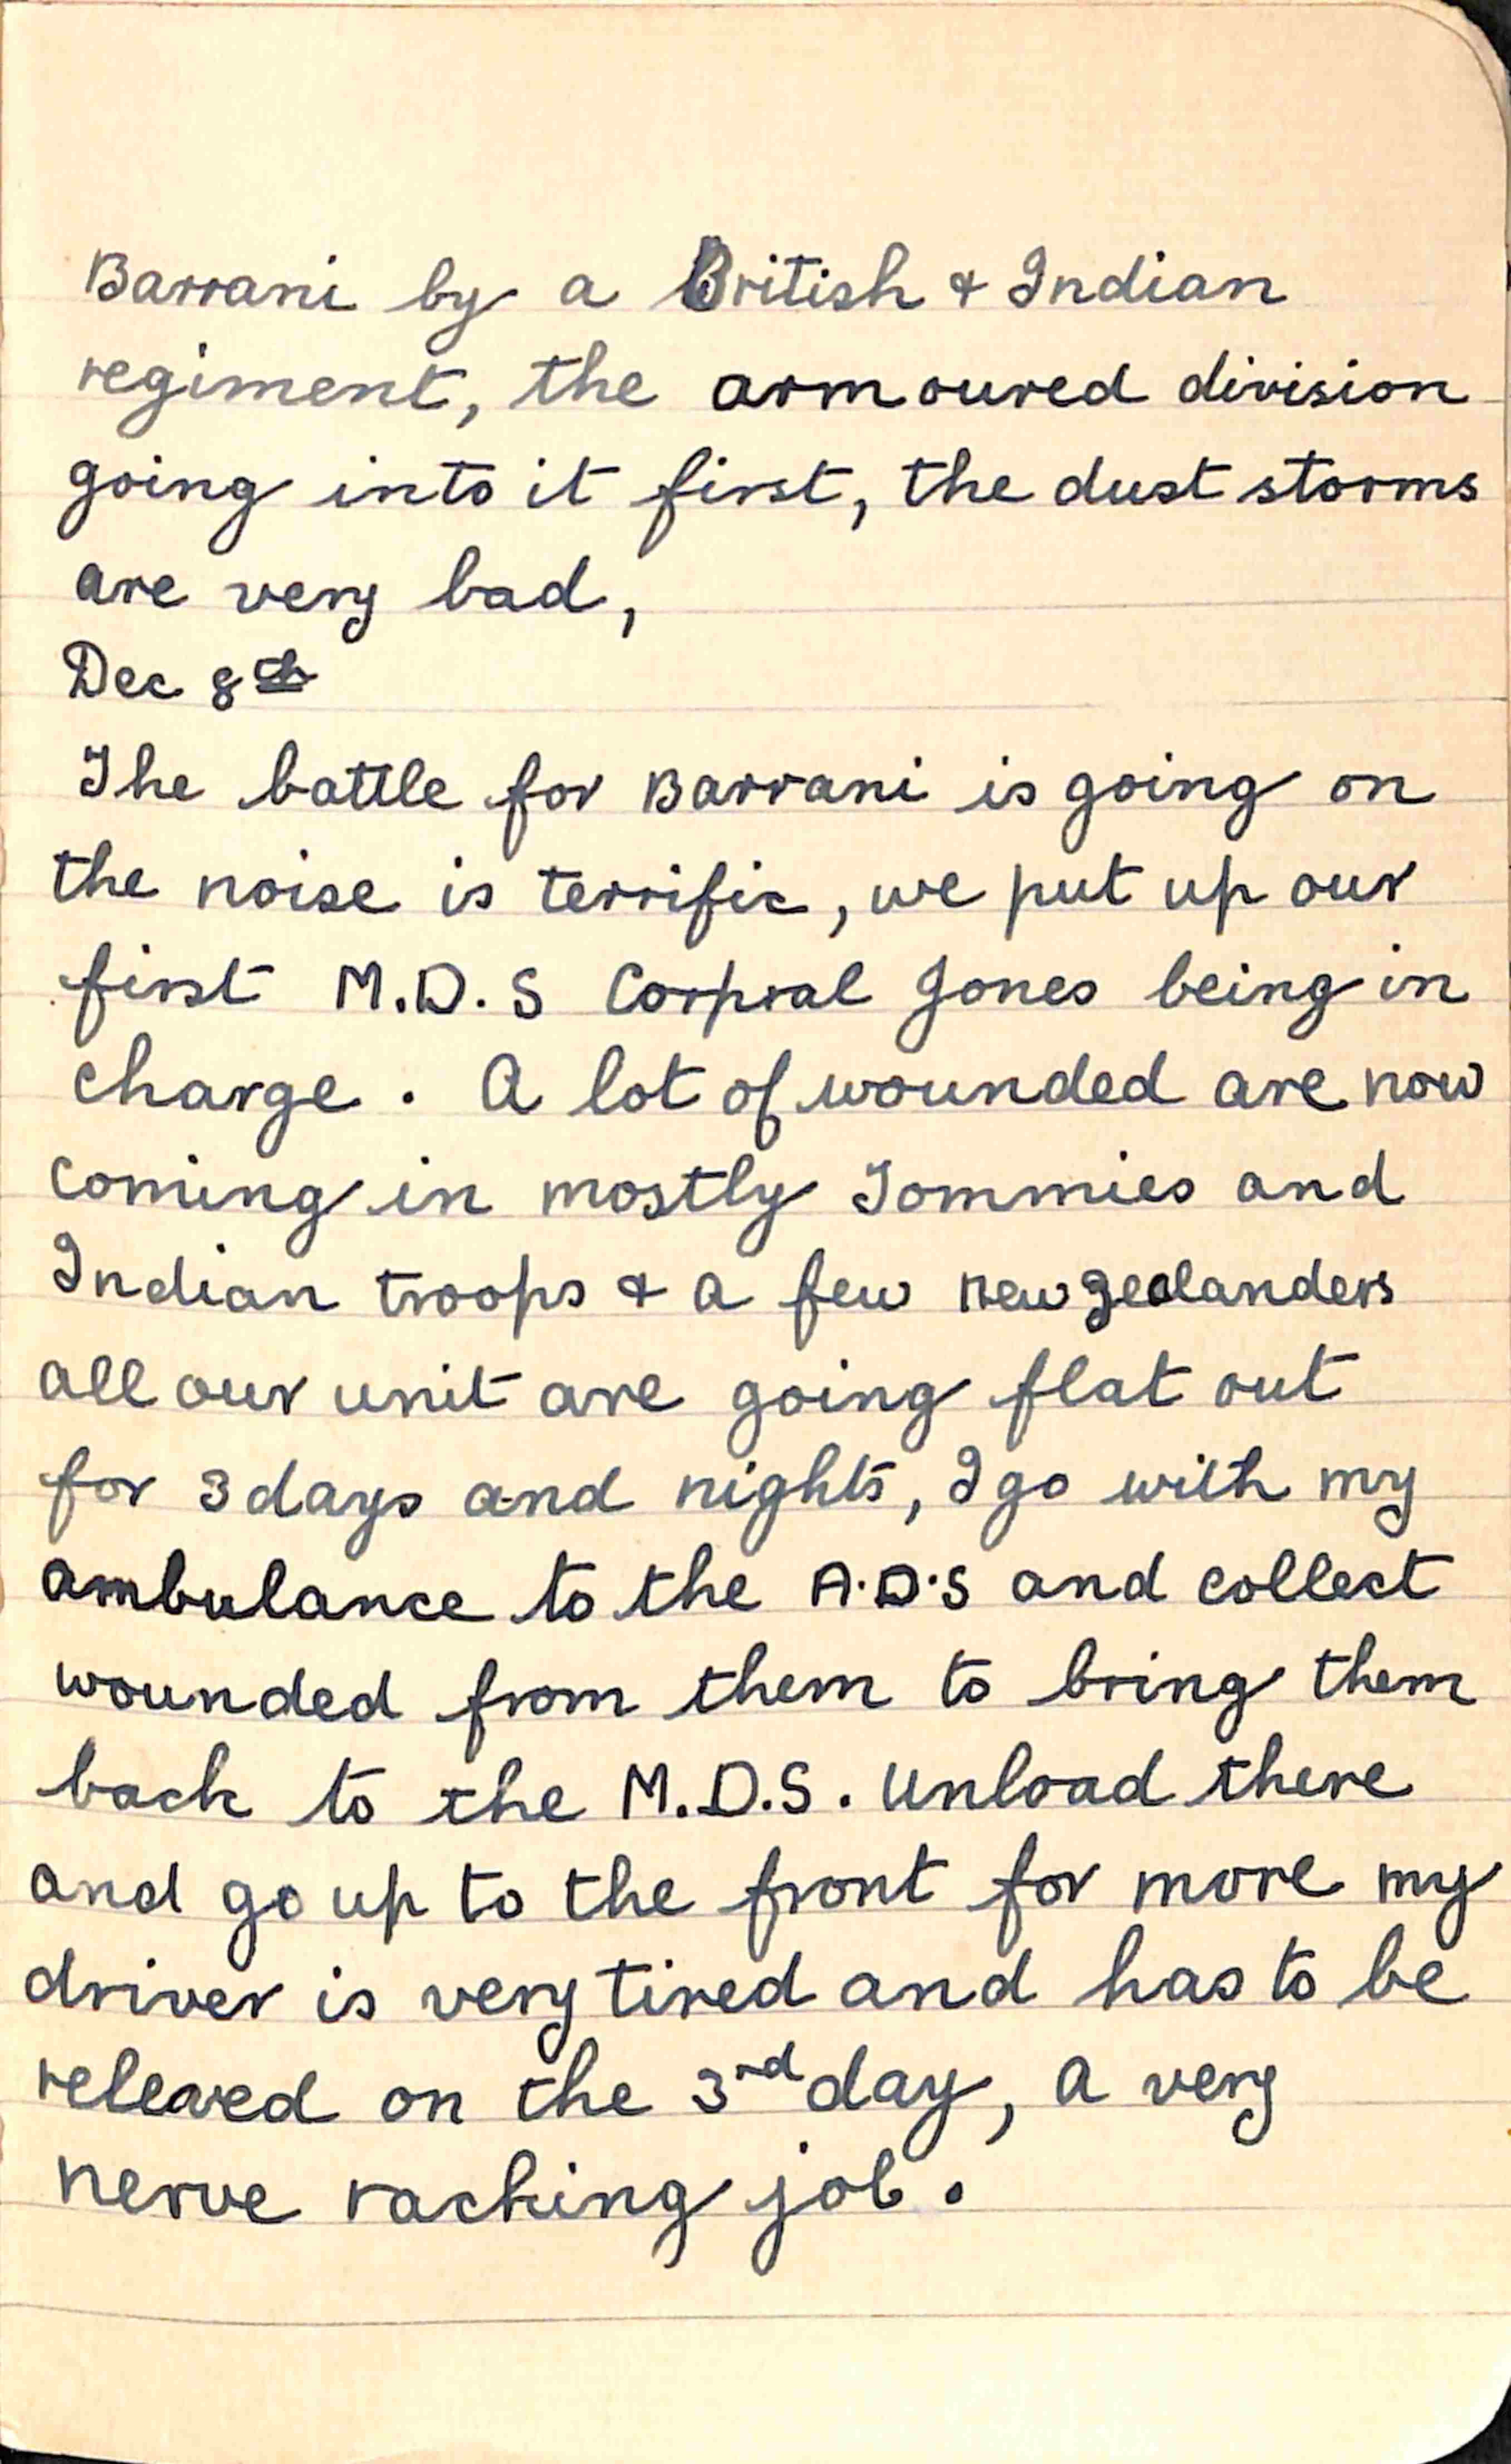 Barrani by a British & Indian
regiment, the armoured division
going into it first, the dust storms
are very bad,
Dec 8th
The battle for Barrani is going on
the noise is terrific, we put up our
first M.D.S Corpral Jones being in
charge. A lot of wounded are now
coming in mostly Tommies and
Indian troops & a few new zealanders
all our unit are going flat out
for 3 days and nights, I go with my
ambulance to the A.D.S and collect
wounded from them to bring them
back to the M.D.S. unload there
and go up to the front for more my
driver is very tired and has to be
releaved on the 3rd day, a very
nerve racking job.